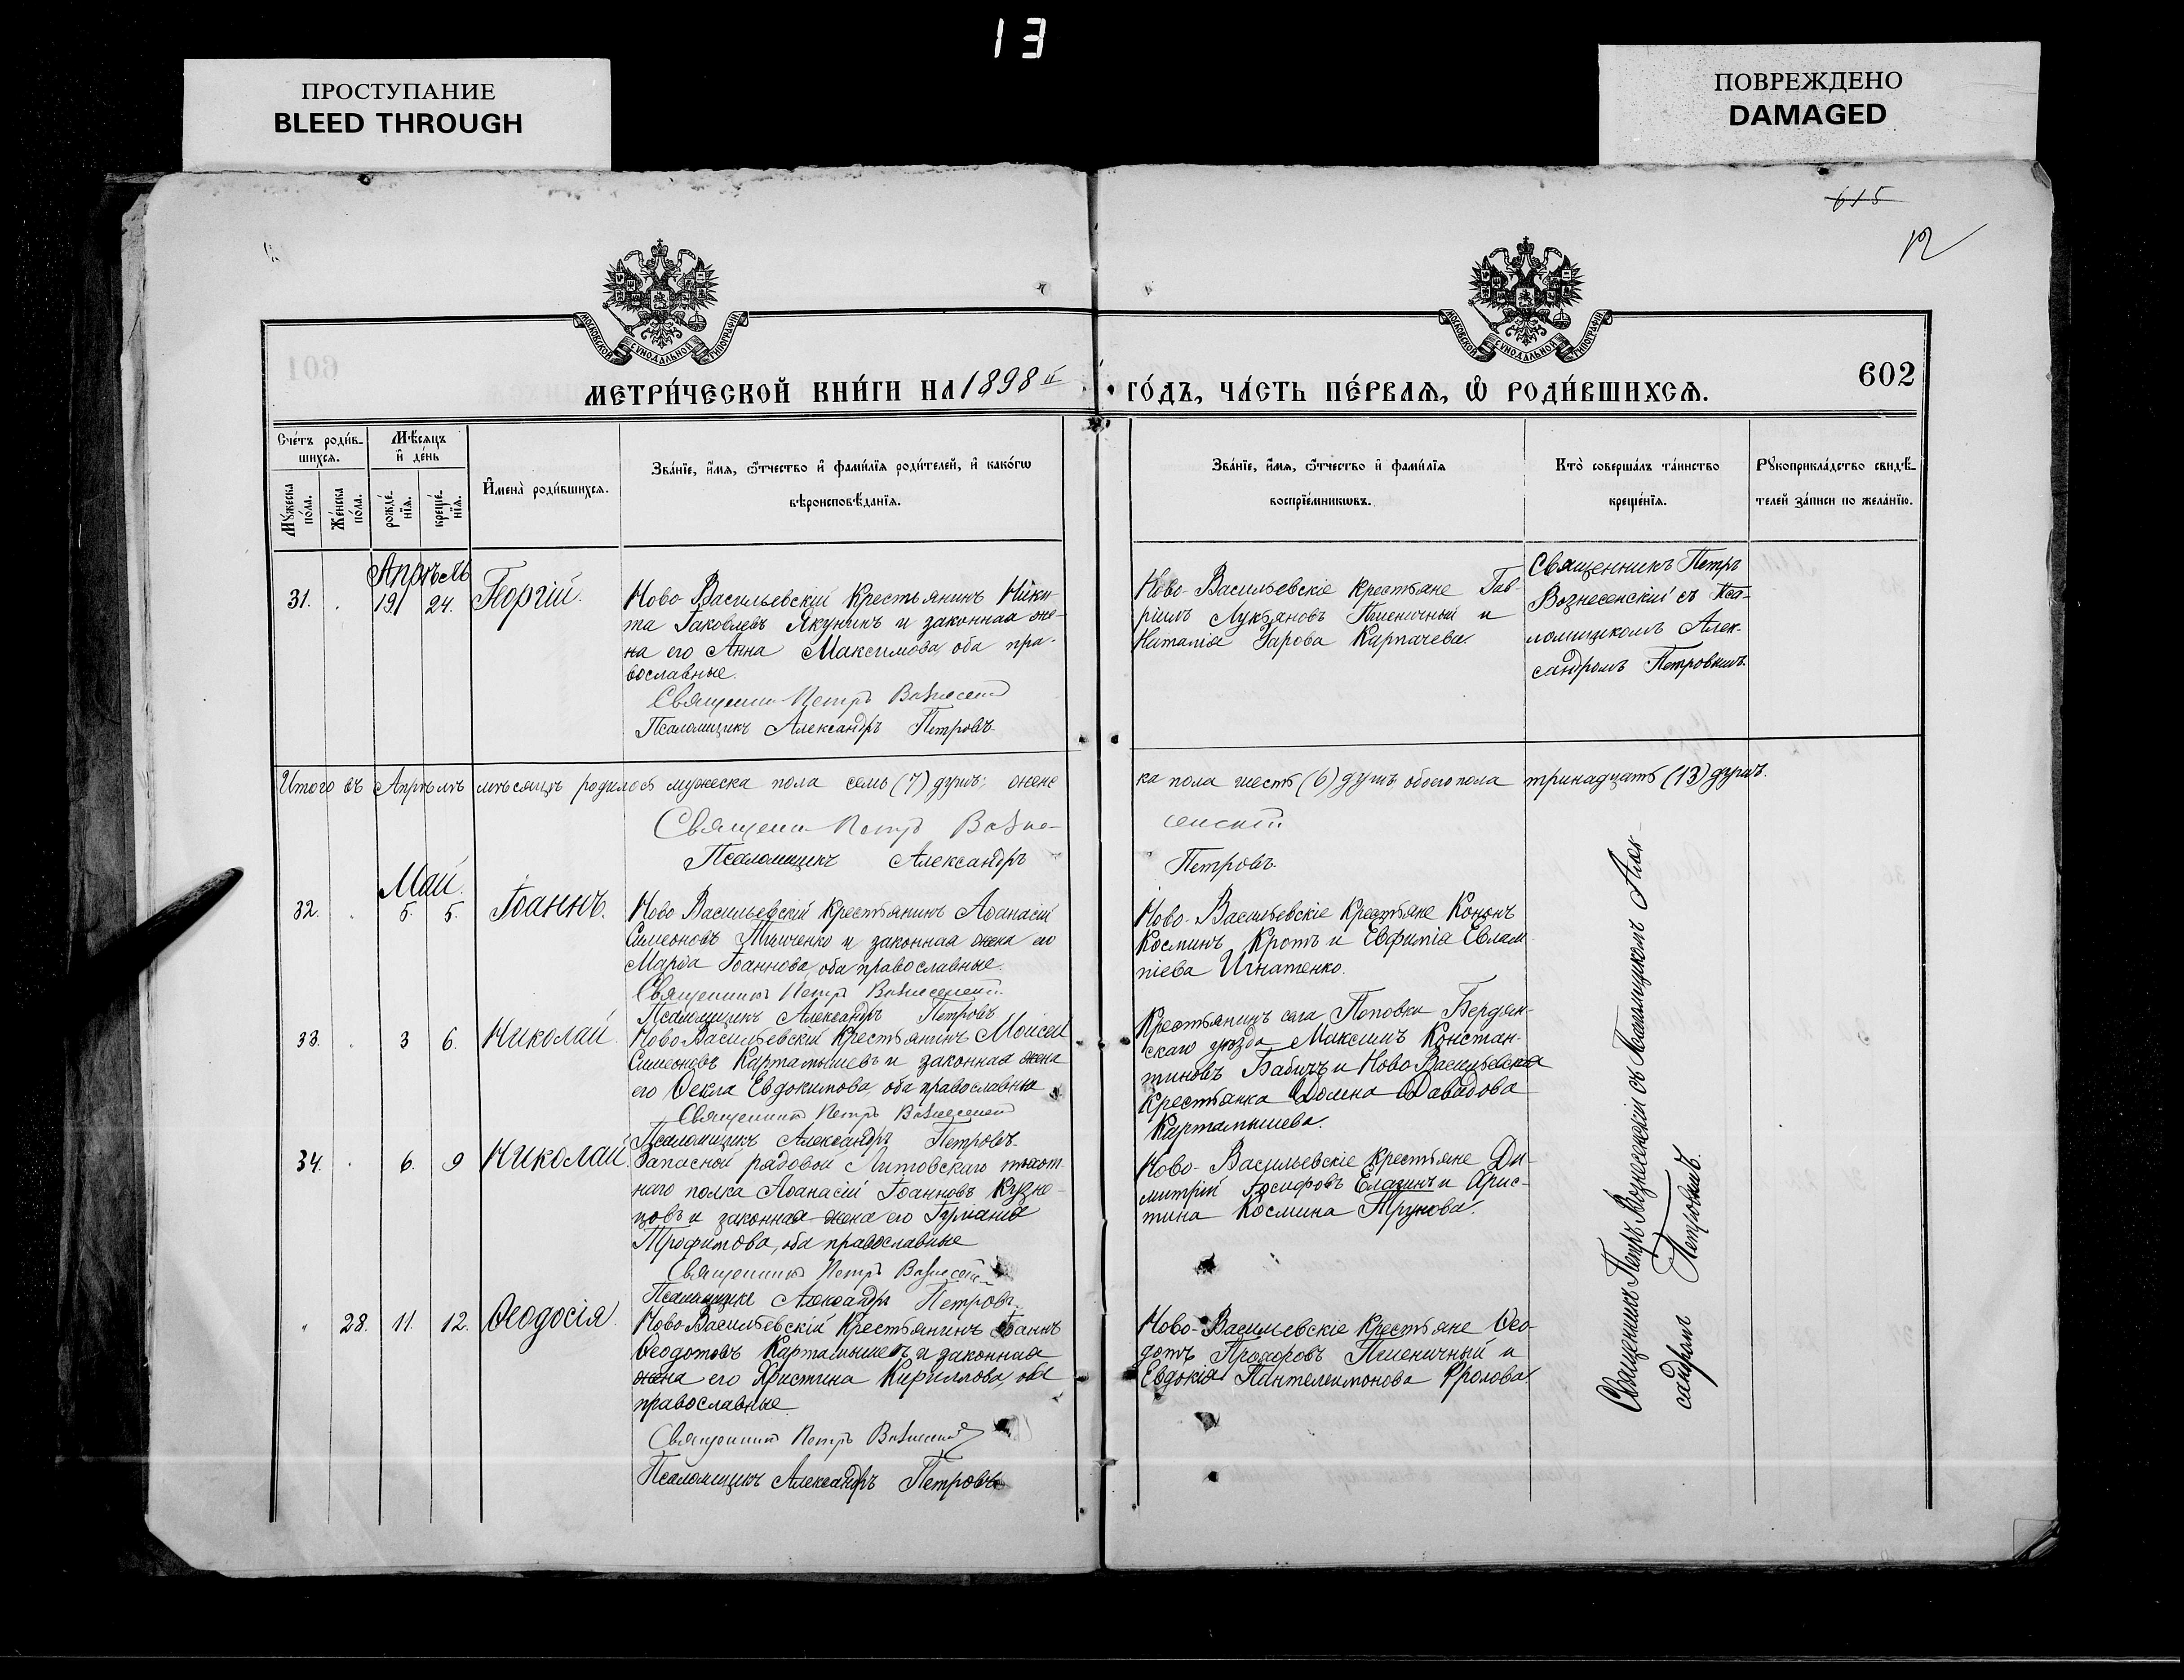 13
ПРОСТУПАНИЕ
BLEED THROUGH
ПОВРЕЖДЕНО
DAMAGED
615
12
МОСКОВСКОЙ СѴНОДАЛЬНОЙ ТИПОГРАФІИ
МОСКОВСКОЙ СѴНОДАЛЬНОЙ ТИПОГРАФІИ
601
602
МЕТРИ́ЧЕСКОЙ КНИ́ГИ НА 1898 й
ГО́ДЪ, ЧА́СТЬ ПЕ́РВАЯ, Ѡ РОДИ́ВШИХСЯ.
Сче́тъ роди́в-
шихся.
Мѣ́сяцъ
и҆ де́нь
Мꙋ́жеска
по́ла.
Же́нска
по́ла.
рожде́-
нїя.
креще́-
нїя.
И҆мена̀ роди́вшихся.
Зва́нїе, и҆́мя, ѻ҆́тчество и҆ фами́лїя роди́телей, и҆ како́гѡ
вѣроисповѣ́данїя.
Зва́нїе, и҆́мя, ѻ҆́тчество и҆ фами́лїя
воспрїе́мникѡвъ.
Кто̀ соверша́лъ та́инство
креще́нїя.
Рꙋкоприкла́дство свидѣ́-
телей за́писи по жела́нїю.
Апрѣль
31. 19 24. Георгій.
Ново Васильевскій Крестьянинъ Ники-
та Іаковлевъ Якунинъ и законная же-
на его Анна Максимова, оба пра-
вославные.
Священникъ Петръ Вознесенскій
Псаломщикъ Александръ Петровъ.
Ново-Васильевскіе Крестьяне Гав-
ріилъ Лукьяновъ Пшеничный и
Наталія Карпачева.
Священникъ Петръ
Вознесенскій съ Пса-
ломщикомъ Алек-
сандромъ Петровымъ.
Итого въ Апрѣлѣ мѣсяцѣ родилось мужеска пола семь (7) душъ; женс
ка пола шесть (6) душъ, обоего пола тринадцать (13) душъ.
Священникъ Петръ Возне-
сенскій
Псаломщикъ Александръ
Петровъ.
Май.
32. 5. 5. Іоаннъ.
Ново Васильевскій Крестьянинъ Аѳанасій
Симеоновъ и законная жена его
Марѳа Іоаннова, оба православные.
Священникъ Петръ Вознесенскій
Псаломщикъ Александръ Петровъ
Ново-Васильевскіе Крестьяне Кононъ
Косминъ Кротъ и Евфимія Евлам-
піева Игнатенко.
33. 3 6. Николай.
Ново Васильевскій Крестьянинъ Моисей
Симеоновъ Картамышевъ и законная жена
его Ѳекла Евдокимова, оба православны
Священникъ Петръ Вознесенскій
Псаломщикъ Александръ Петровъ.
Крестьянинъ села Поповки Бердян-
скаго уѣзда Максимъ Констан-
тиновъ Бабичъ и Ново Васильевская
Крестьянка Домна Давидова
Картамышева.
34. 6. 9 Николай.
Запасной рядовой Литовскаго пѣхот-
наго полка Аѳанасій Іоанновъ Кузне-
цовъ и законная жена его Іуліанія
Трофимова, оба православные
Священникъ Петръ Вознесенскій
Псаломщикъ Александръ Петровъ.
Ново-Васильевскіе Крестьяне Ди-
митрій Іосифовъ Елагинъ и Хрис-
тина Космина Трунова.
28. 11. 12. Ѳеодосія.
Ново Васильевскій Крестьянинъ Іоаннъ
Ѳеодотовъ Картамышевъ и законная
жена его Христина Кириллова, оба
православные.
Священникъ Петръ Вознесенскій
Псаломщикъ Александръ Петровъ
Ново-Васильевскіе Крестьяне Ѳео-
дотъ Прохоровъ Пшеничный и
Евдокія Пантелеимонова Фролова.
Священникъ Петръ Вознесенскій съ Псаломщикомъ Алек-
сандромъ Петровымъ.